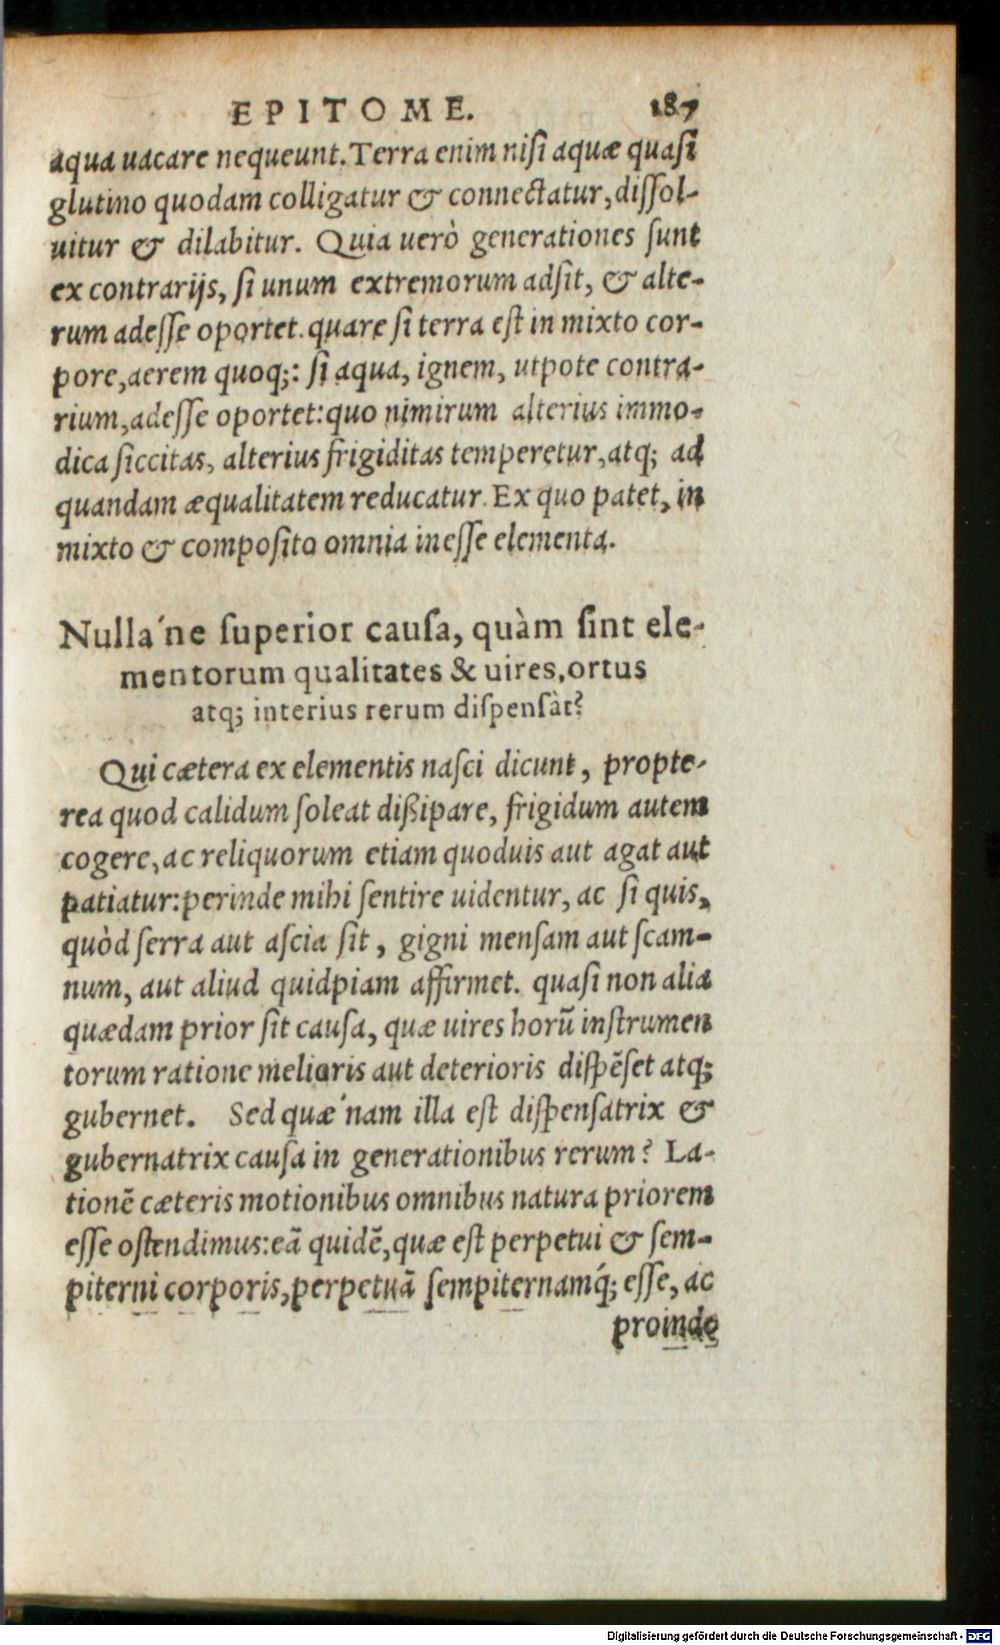 EPITOME. 187
aqua uacare nequeunt. Terra enim nisi aquæ quasi
glutino quodam colligatur & connectatur, dissol-
uitur & dilabitur. Quia uerò generationes sunt
ex contrarijs, si unum extremorum adsit, & alte-
rum adesse oportet. quare si terra est in mixto cor-
pore, aerem quoq;: si aqua, ignem, utpote contra-
rium, adesse oportet: quo nimirum alterius immo-
dica siccitas, alterius frigiditas temperetur, atq; ad
quandam æqualitatem reducatur. Ex quo patet, in
mixto & composito omnia inesse elementa.
Nulla´ne superior causa, quàm sint ele-
mentorum qualitates & uires, ortus
atq; interius rerum dispensàt?
Qui cætera ex elementis nasci dicunt, propte-
rea quod calidum soleat dißipare, frigidum autem
cogere, ac reliquorum etiam quoduis aut agat aut
patiatur: perinde mihi sentire uidentur, ac si quis,
quòd serra aut ascia sit, gigni mensam aut scam-
num, aut aliud quidpiam affirmet. quasi non alia
quædam prior sit causa, quæ uires horũ instrumen
torum ratione melioris aut deterioris dispẽset atq;
gubernet. Sed quæ´nam illa est dispensatrix &
gubernatrix causa in generationibus rerum? La-
tionẽ cæteris motionibus omnibus natura priorem
esse ostendimus: eã quidẽ, quæ est perpetui & sem-
piterni corporis, perpetuã sempiternamq́; esse, ac
proinde
Digitalisierung gefördert durch die Deutsche Forschungsgemeinschaft - DFG